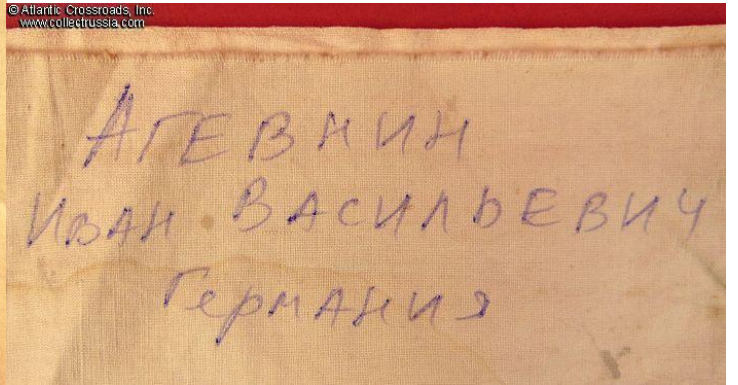 © Atlantic Crossroads, Inc.
www.collectrussia.com
АГЕВНИН
ИВАН ВАСИЛЬЕВИЧ
ГЕРМАНИЯ